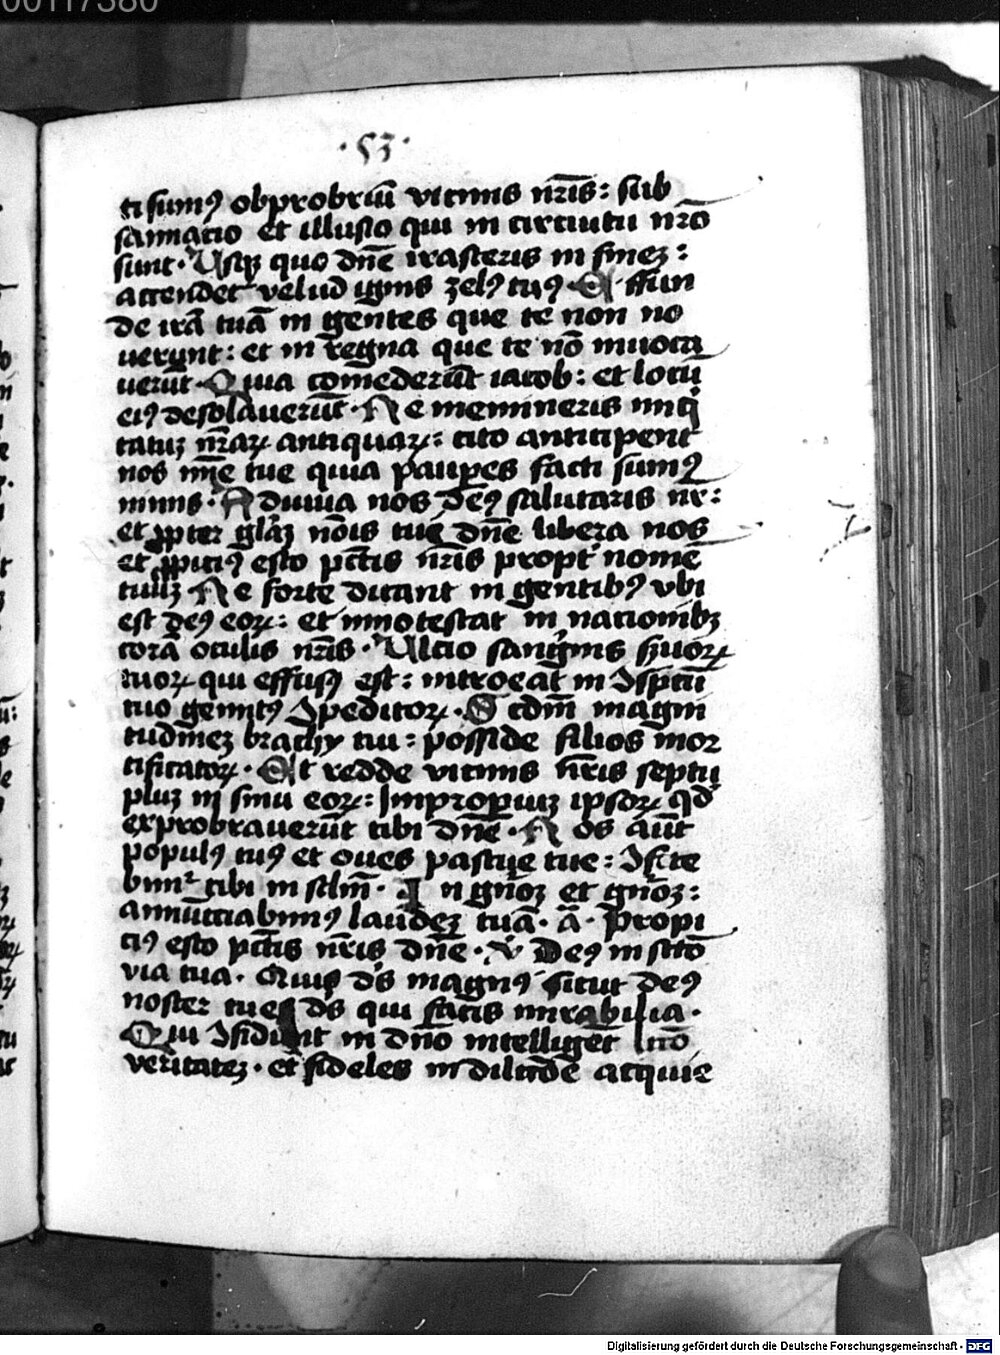 00117380
·53·
ti sumꝰ obprobriū vicinis nr̄is: sub
sannacio et illusio qui in circuitu nr̄o
sunt· Usqꝫ quo dn̄e irasceris in fineꝫ:
accendet velud ignis zelꝰ tuꝰ Effun
de irā tuā in gentes que te non no
uerunt: et in regna que te nō inuoca
uerūt· Quia comederūt iacob: et locū
eiꝰ desolauerūt· Ne memineris iniq̄
tatuꝫ nr̄aꝝ antiquaꝝ: cito anticipent
nos mīe tue quia pauꝑes facti sumꝰ
nimis· Adiuua nos deꝰ salutaris nr̄:
et ꝓpter gl̄aꝫ nōis tui dn̄e libera nos
et ꝓpiciꝰ esto pct̄is nr̄is propt̕ nomē
tuuꝫ Ne forte dicant in gentibꝰ vbi
est deꝰ eoꝝ: et innotescat in nationibꝫ
corā oculis nr̄is· Ulcio sangīnis ẜuoꝝ
tuoꝝ qui effusꝰ est: introeat in ↄsꝑctū
tuo gemitꝰ ↄpeditoꝝ· Scd̄m magni
tudineꝫ brachij tui: posside filios mor
tificatoꝝ· Et redde vicinis nr̄is septu
pluꝫ in sinu eoꝝ: Improperiuꝫ ipsoꝝ qd̄
exprobrauerūt tibi dn̄e· Nos aūt
populꝰ tuꝰ et oues pascue tue: ↄfite
bimur tibi in sclm̄· In gn̄oꝫ et gn̄oꝫ:
annūciabimꝰ laudeꝫ tuā· ā· Propi
ciꝰ esto pct̄is nr̄is dn̄e· v̄ Deꝰ in sctō
via tua· Quis ds̄ magnꝰ sicut deꝰ
noster tu es ds̄ qui facis mirabilia·
Qui ↄfidunt in dn̄o intelliget
veritateꝫ· et fideles in dilcōe acquie
Digitalisierung gefördert durch die Deutsche Forschungsgemeinschaft - DFG